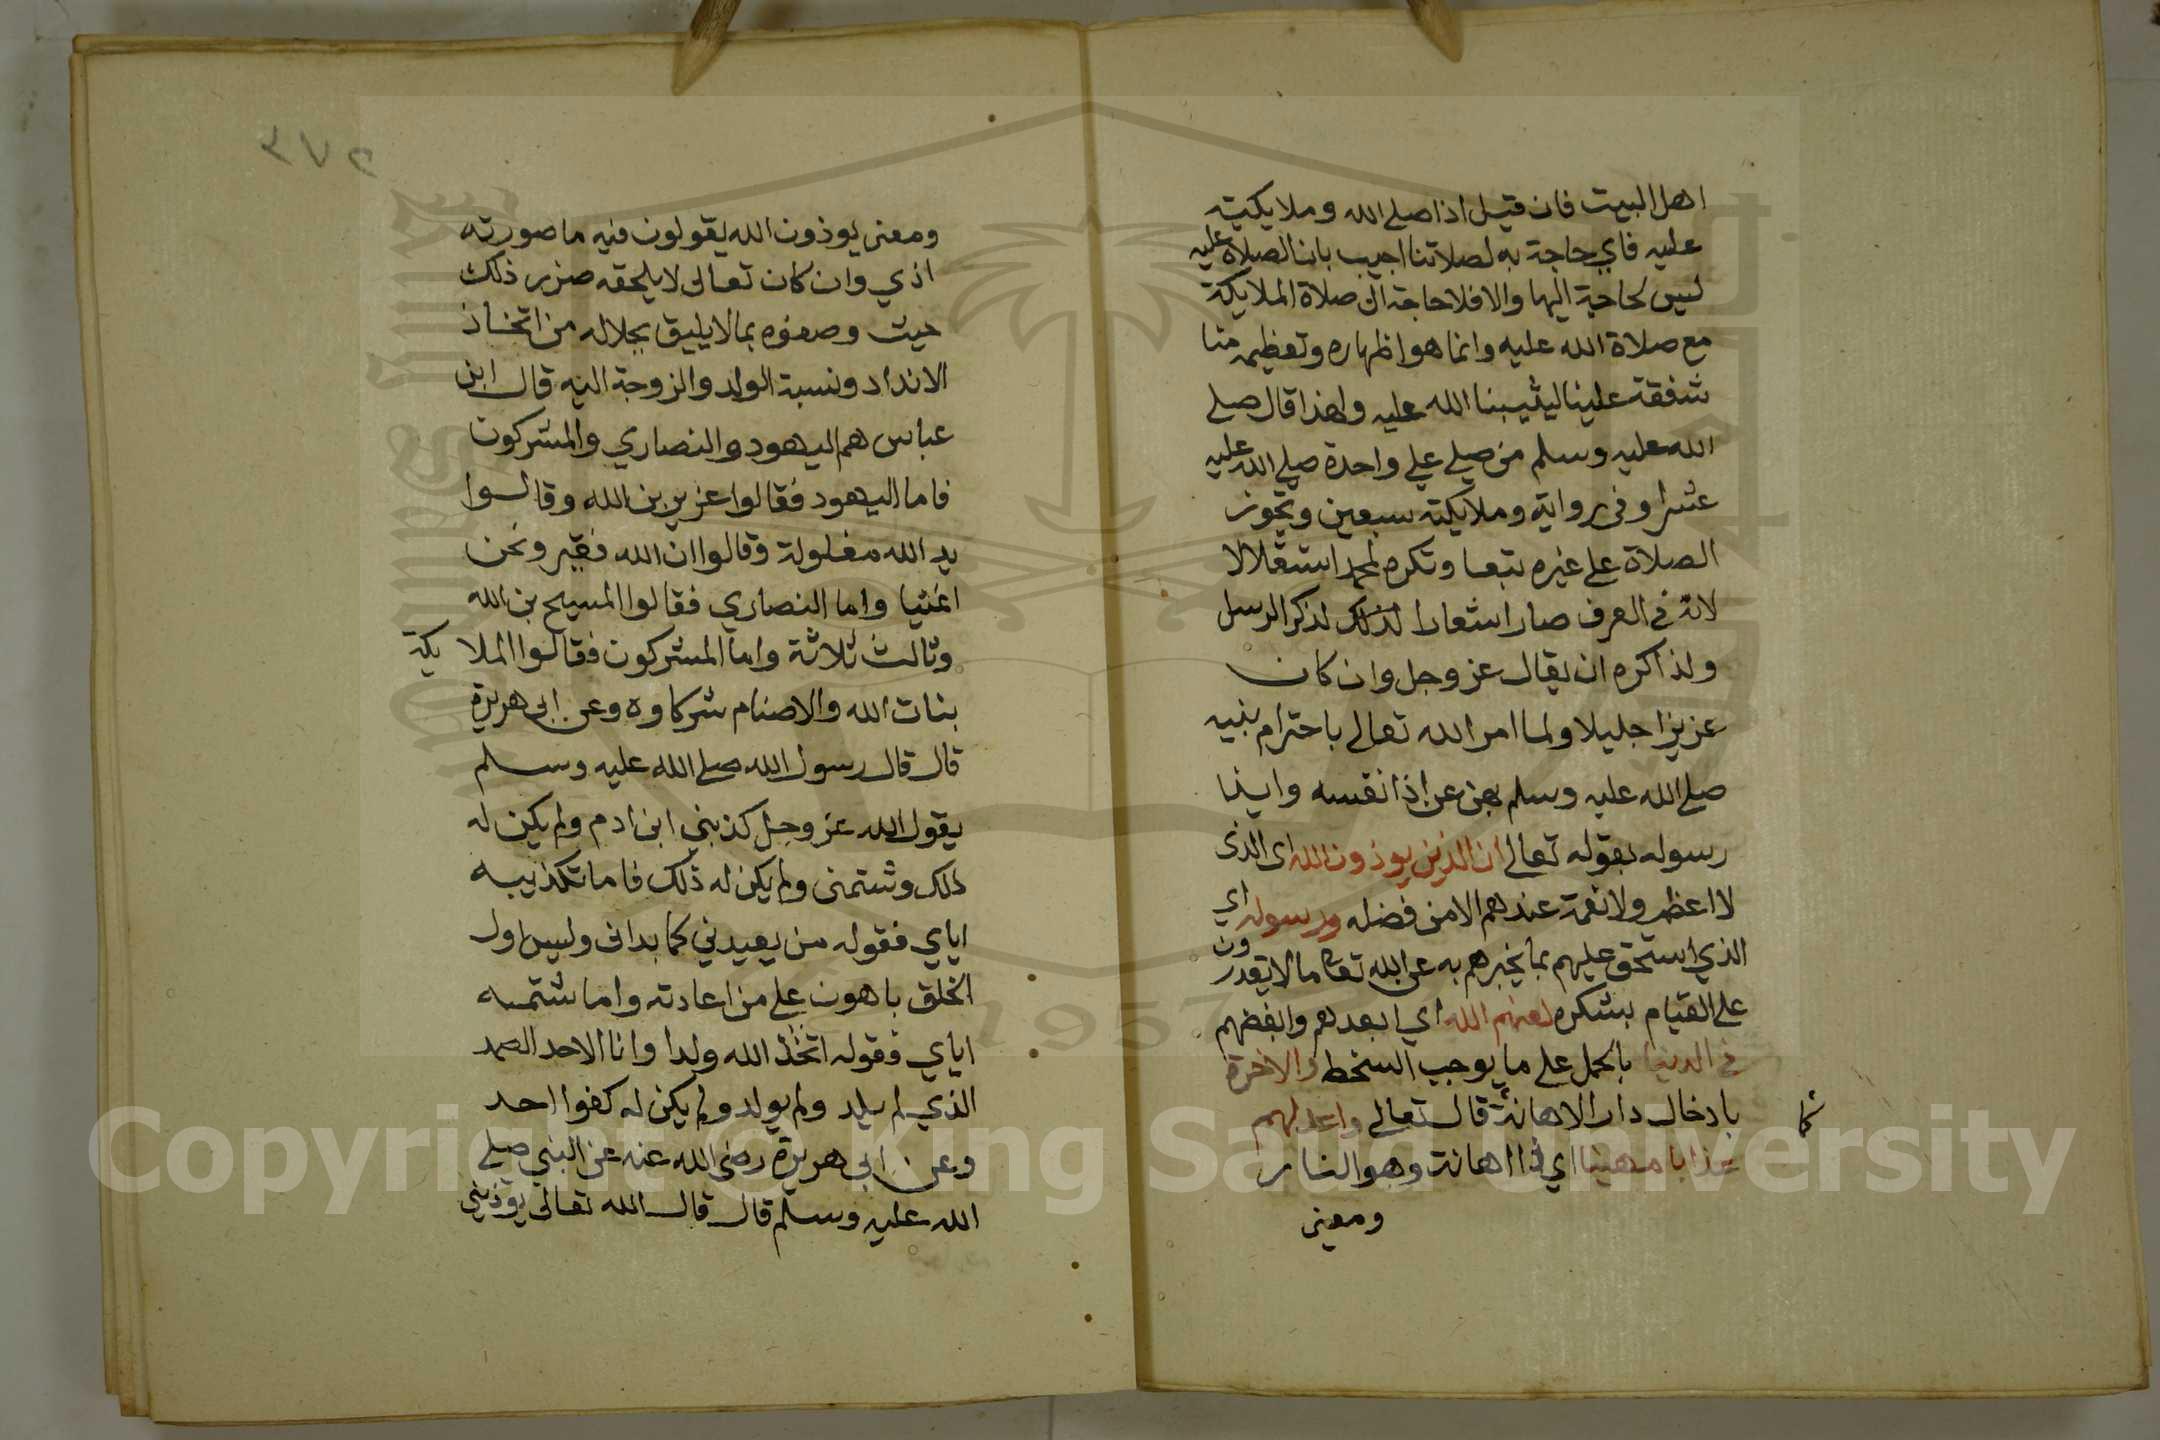 اهل البيت فان قيل اذا صلي الله وملايكيته
عليه فاي حاجة به لصلاتنا اجيب بان الصلاة عليه
ليس لحاجة اليها والا فلا حاجة الي صلاة الملايكة
مع صلاة الله عليه وانما هو اظهاره وتعظيمه منا
شفقة علينا ليثيبنا الله عليه ولهذا قال صلي
الله عليه وسلم من صلي علي واحدة صلي الله عليه
عشرا وفي رواية وملايكته سبعين وتجوز
الصلاة علي غيره تبعا وتكره استقلالا
لانه في العرف صار شعارا لذلك لذكر الرسل
ولذا كره ان يقال عز وجل وان كان
عزيزا جليلا ولما امر الله تعالي باحترام نبيه
صلي الله عليه وسلم نهي عن اذا نفسه وايذا
رسوله بقوله تعالي ان الذين يوذون الله اي الذي
لا اعظم ولا نعمة عندهم الا من فضله ورسوله اي
الذي استحق عليهم بما يخبرهم به عن الله تعالي مالا يقدرون
علي القيام بشكره لعنهم الله اي ابعدهم وابغضهم
في الدنيا بالحمل علي ما يوجب السخط والاخرة
بادخال دار الاهانة قال تعالي واعد لهم
كما
عذابا مهينا اي ذا اهانة وهو النار
ومعني
٣٧٥
ومعني يوذون الله يقولون فيه ما صورته
اذي وان كان تعالي لا يلحقه ضرر ذلك
حيث وصفوه بما لا يليق بجلاله من اتخاذ
الانداد ونسبة الولد والزوجة اليه قال ابن
عباس هم اليهود والنصاري والمشركون
فاما اليهود فقالوا عزير بن الله وقالوا
يد الله مغلولة وقالوا ان الله فقير ونحن
اغنيا واما النصاري فقالوا المسيح بن الله
وثالث ثلاثة واما المشركون فقالوا الملايكة
بنات الله والاصنام شركاوه وعن ابي هريرة
قال قال رسول الله صلي الله عليه وسلم
يقول الله عز وجل كذبني ابن ادم ولم يكن له
ذلك وشتمني ولم يكن له ذلك فاما تكذيبه
اياي فقوله من يعيدني كما بداني وليس اول
الخلق باهون علي من اعادته واما شتمه
اياي فقوله اتخذ الله ولدا وانا الاحد الصمد
الذي لم يلد ولم يولد ولم يكن له كفوا احد
وعن ابي هريرة رضي الله عنه عن النبي صلي
الله عليه وسلم قال قال الله تعالي يوذيني
Copyright © King Saud University
1957